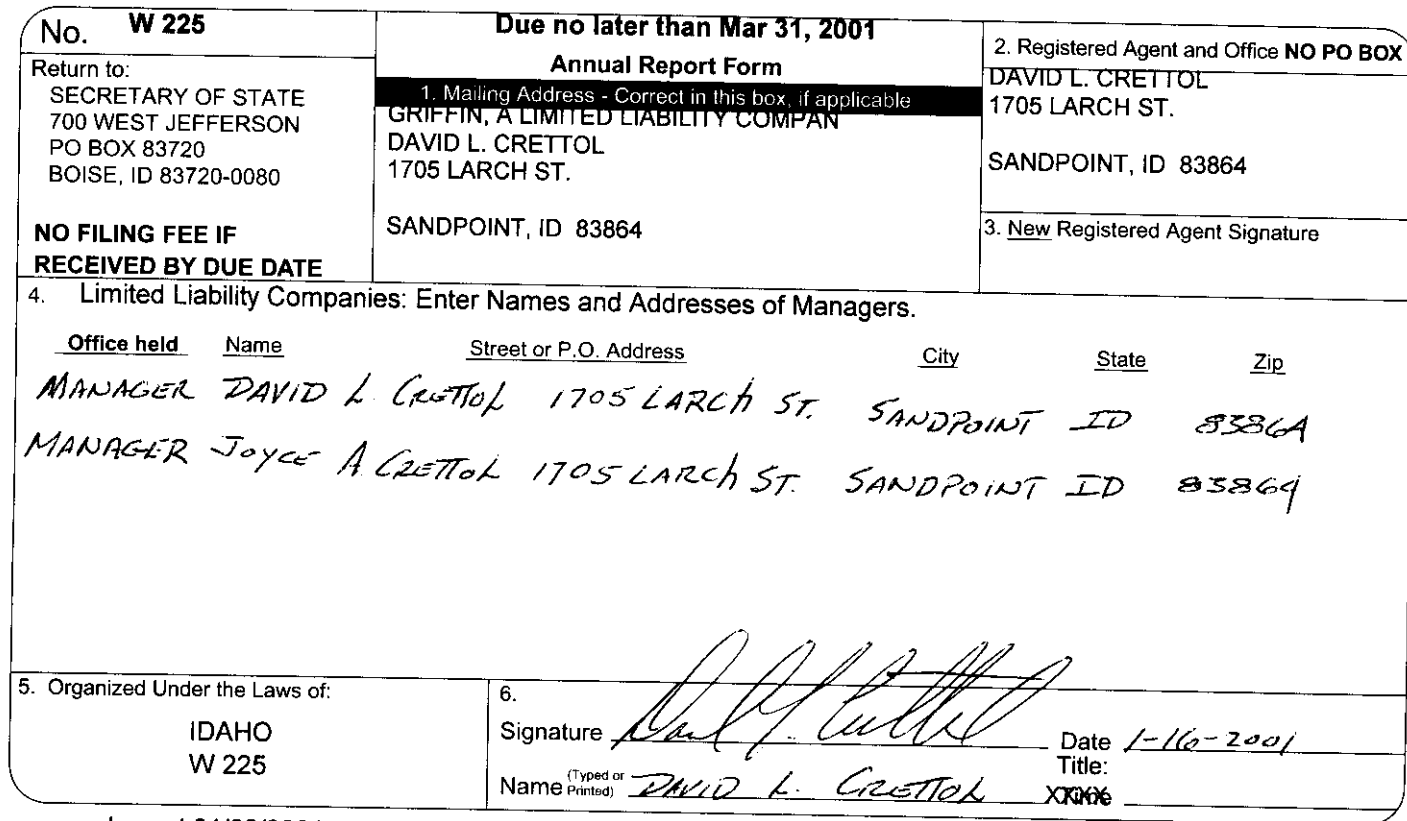 No. W 225
Return to:
SECRETARY OF STATE
700 WEST JEFFERSON
PO BOX 83720
BOISE, ID 83720-0080
NO FILING FEE IF
RECEIVED BY DUE DATE
Due no later than Mar 31, 2001
Annual Report Form
1. Mailing Address - Correct in this box, if applicable
GRIFFIN, A LIMITED LIABILITY COMPAN
DAVID L. CRETTOL
1705 LARCH ST.
SANDPOINT, ID 83864
2. Registered Agent and Office NO PO BOX
DAVID L. CRETTOL
1705 LARCH ST.
SANDPOINT, ID 83864
3. New Registered Agent Signature
4. Limited Liability Companies: Enter Names and Addresses of Managers.
Office held Name Street or P.O. Address City State Zip
MANAGER DAVID L. CRETTOL 1705 LARCH ST. SANDPOINT ID 83864
MANAGER JOYCE A. CRETTOL 1705 LARCH ST. SANDPOINT ID 83864
5. Organized Under the Laws of:
IDAHO
W 225
6.
Signature Date 1-16-2001
Title:
Name (Typed or Printed) DAVID L. CRETTOL